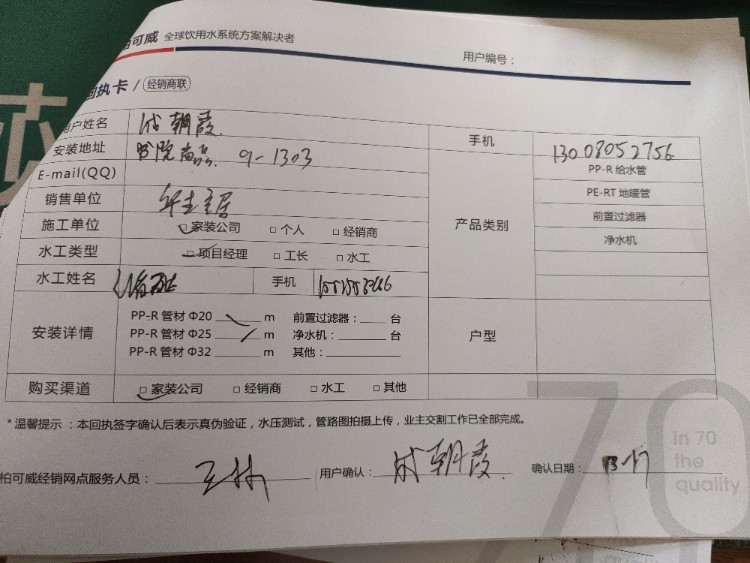 可威 全球饮用水系统方案解决者
用户编号：
回执卡 / 经销商联
用户姓名 成朝霞 手机 13008052756
安装地址 9-1303 产品类别 PP-R 给水管
E-mail(QQ) PE-RT 地暖管
销售单位 前置过滤器
施工单位 □家装公司 □ 个人 □ 经销商 净水机
水工类型 □ 项目经理 □ 工长 □ 水工
水工姓名 手机
安装详情 PP-R 管材 Φ20 m 前置过滤器： 台 户型
PP-R 管材 Φ25 m 净水机： 台
PP-R 管材 Φ32 m 其他：
购买渠道 □ 家装公司 □ 经销商 □ 水工 □ 其他
*温馨提示：本回执签字确认后表示真伪验证，水压测试，管路图拍摄上传，业主交割工作已全部完成。
柏可威经销网点服务人员： 王林 用户确认： 成朝霞 确认日期：
70
In 70
the
quality